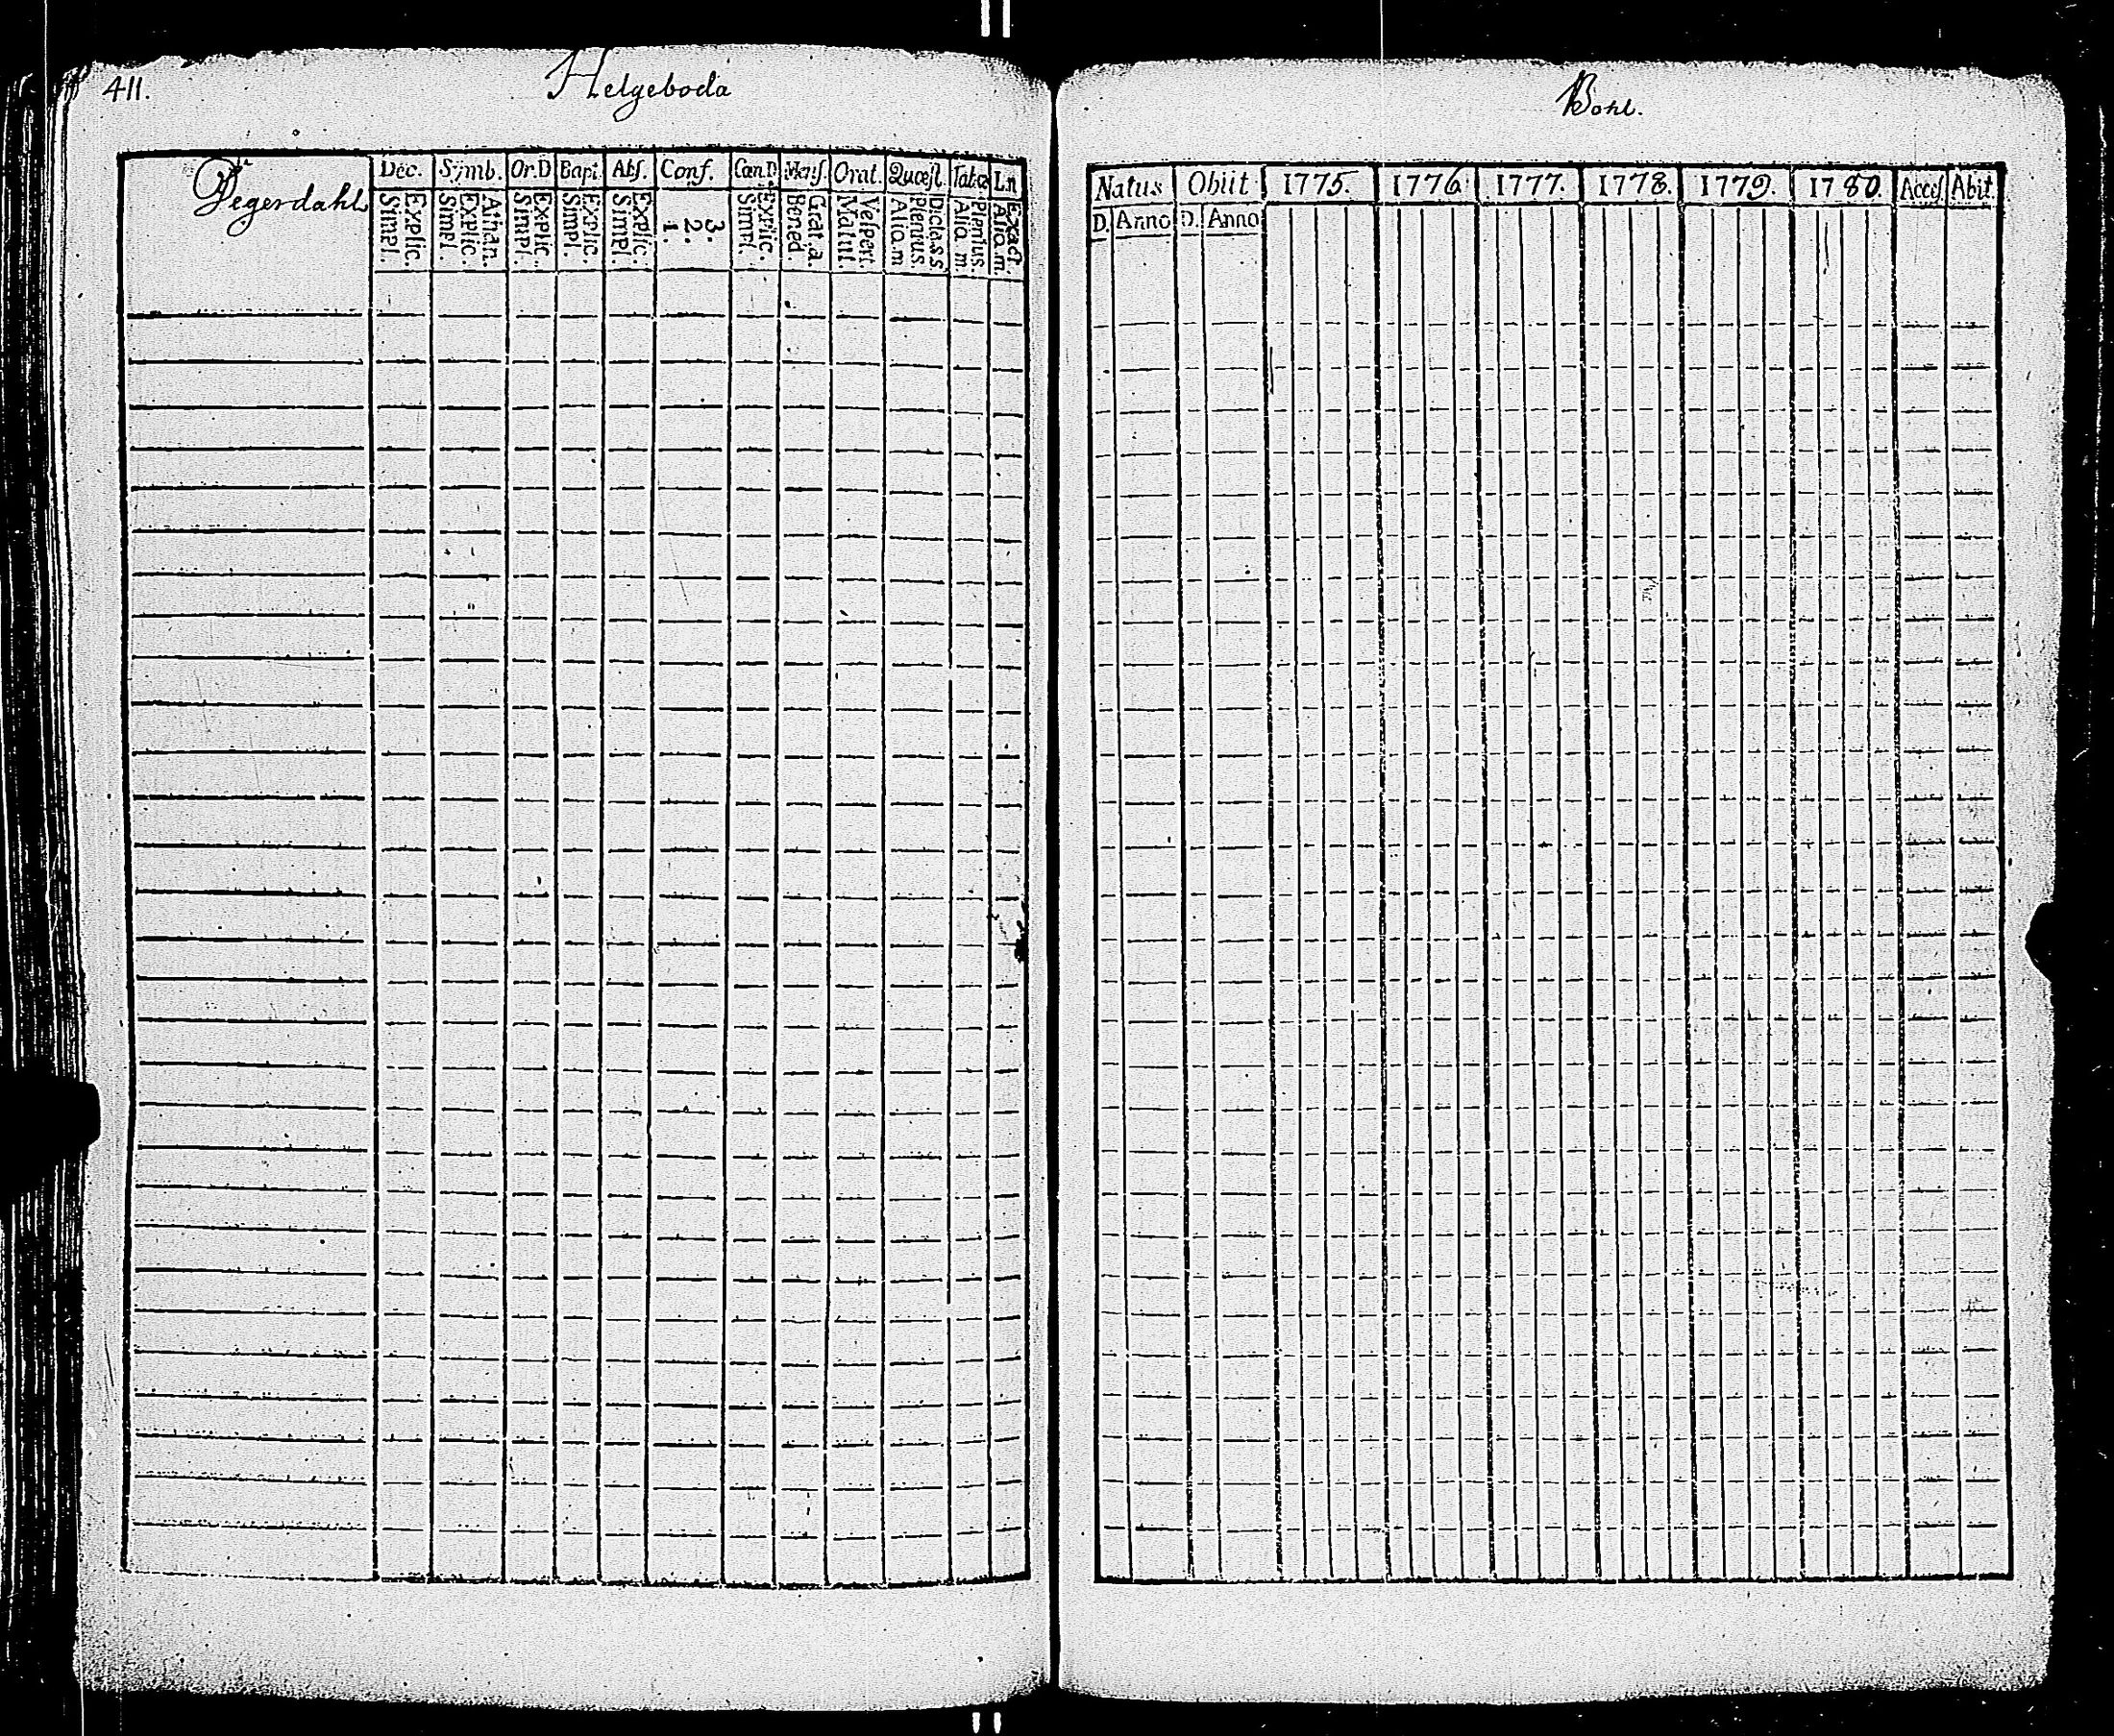 411.
Helgeboda
Bohl.
Degerdahl
Dec. Symb. Or.D Bapt. Abs. Conf. Cœn.D Mens. Orat. Quæst. Tab.œ Ln
Explic. Simpl.
Athan. Explic. Simpl.
Explic. Simpl.
Explic. Simpl.
Explic. Simpl.
3. 2. 1.
Explic. Simpl.
Grat. a. Bened.
Vespert. Matut.
Dicta s.s. Plenius. Alio m.
Plenius. Alia m.
Exact. Alio m.
Natus Obiit 1775. 1776 1777. 1778. 1779. 1780. Acces. Abit
D. Anno D. Anno